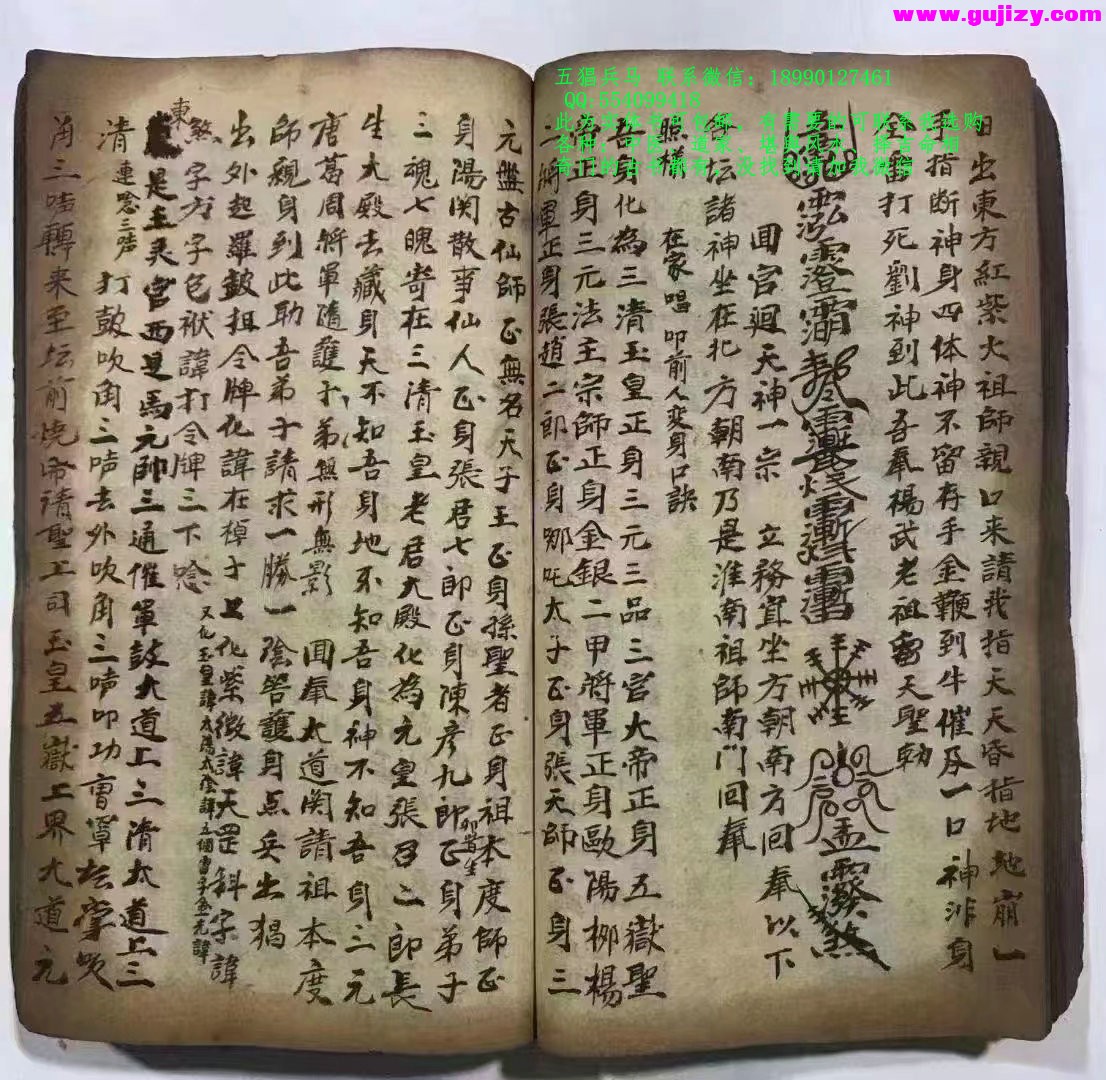 www.gujizy.com
五猖兵马 联系微信：18990127461
QQ:554099418
此为实体书可包邮，有需要的可联系我选购
各种，中医、道家、堪舆风水、择吉命相
奇门的古书都有，没找到请加我微信
日出東方紅紫火祖師親口来請我指天天昏指地地崩一
指断神身四体神不留存手金鞭到牛催及一口神沸身
打死劉神到此吾奉楊武老祖雷天聖勅
囬宮廻天神一宗 立務宜坐方朝南方回奉以下
坛諸神坐在北方朝南乃是淮南祖師南門回奉
在家唱叩前人变身口訣
吾身化為三清玉皇正身三元三品三官大帝正身五嶽聖
帝正身三元法王宗師正身金銀二甲将軍正身歐陽柳楊
二將軍正身張趙二郎正身哪吒太子正身張天師正身三
元盤古仙師正無名天子王正身孫聖者正身祖本度師正
身湯関散事仙人正身張君七郎正身陳彦九郎正身弟子
三魂七魄寄在三清玉皇老君大殿化為元皇張召二郎長
生大殿去藏身天不知吾身地不知吾身神不知吾身三元
唐葛周將軍隨護于弟無形無影 囬奉太道関請祖本度
師親身到此助吾弟子請求一勝一陰答護身点兵出猖
出外起羅鈸扭令牌化諱在棹子上化紫微諱天罡斜字諱
煞字方字色袱諱打令牌三下唸
又化玉皇諱太陽太陰諱五個雷字金光諱
東是王灵官西是馬元帥三通催軍鼓大道上三清太道上三
清連唸三声打鼓吹角三声去外吹角三声叩功曹單坛掌吹
角三声轉来至坛前燒帋請聖上司玉皇五嶽上界大道元